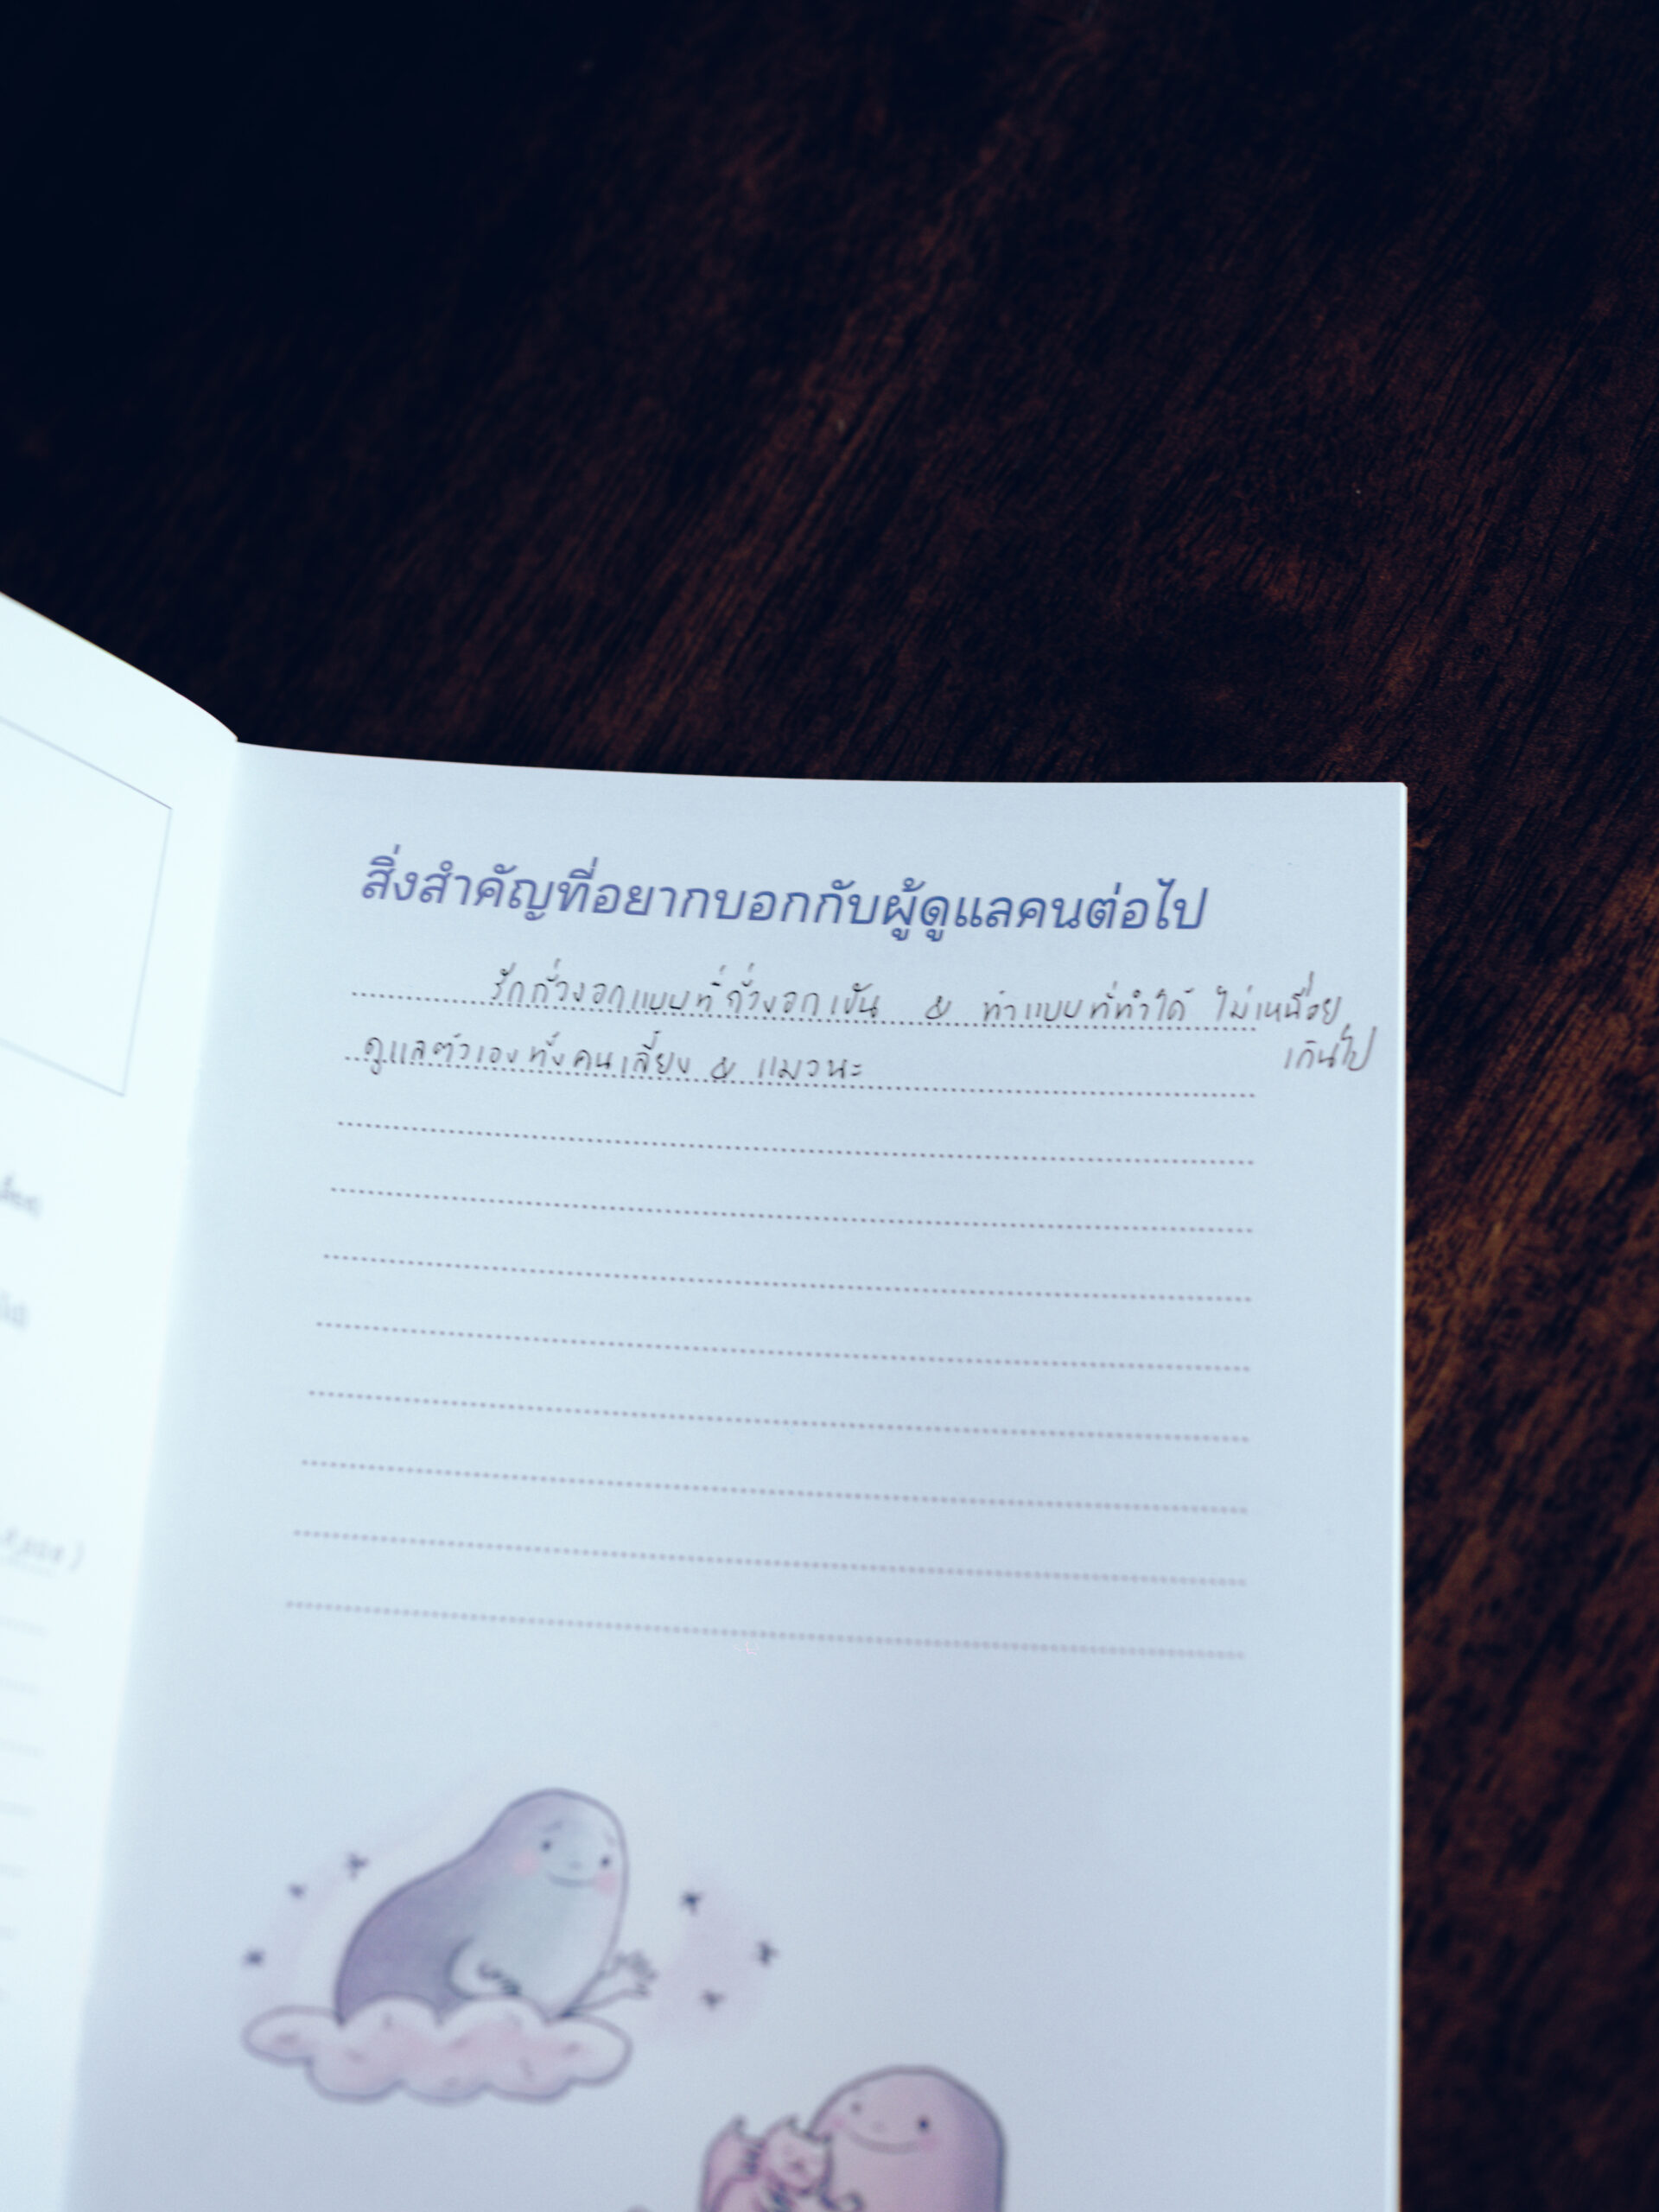 สิ่งสำคัญที่อยากบอกกับผู้ดูแลคนต่อไป
รักถั่วงอกแบบที่ถั่วงอกเป็น & ทำแบบที่ทำได้ ไม่เหนื่อย
เกินไป
ดูแลตัวเองทั้งคนเลี้ยง & แมวนะ